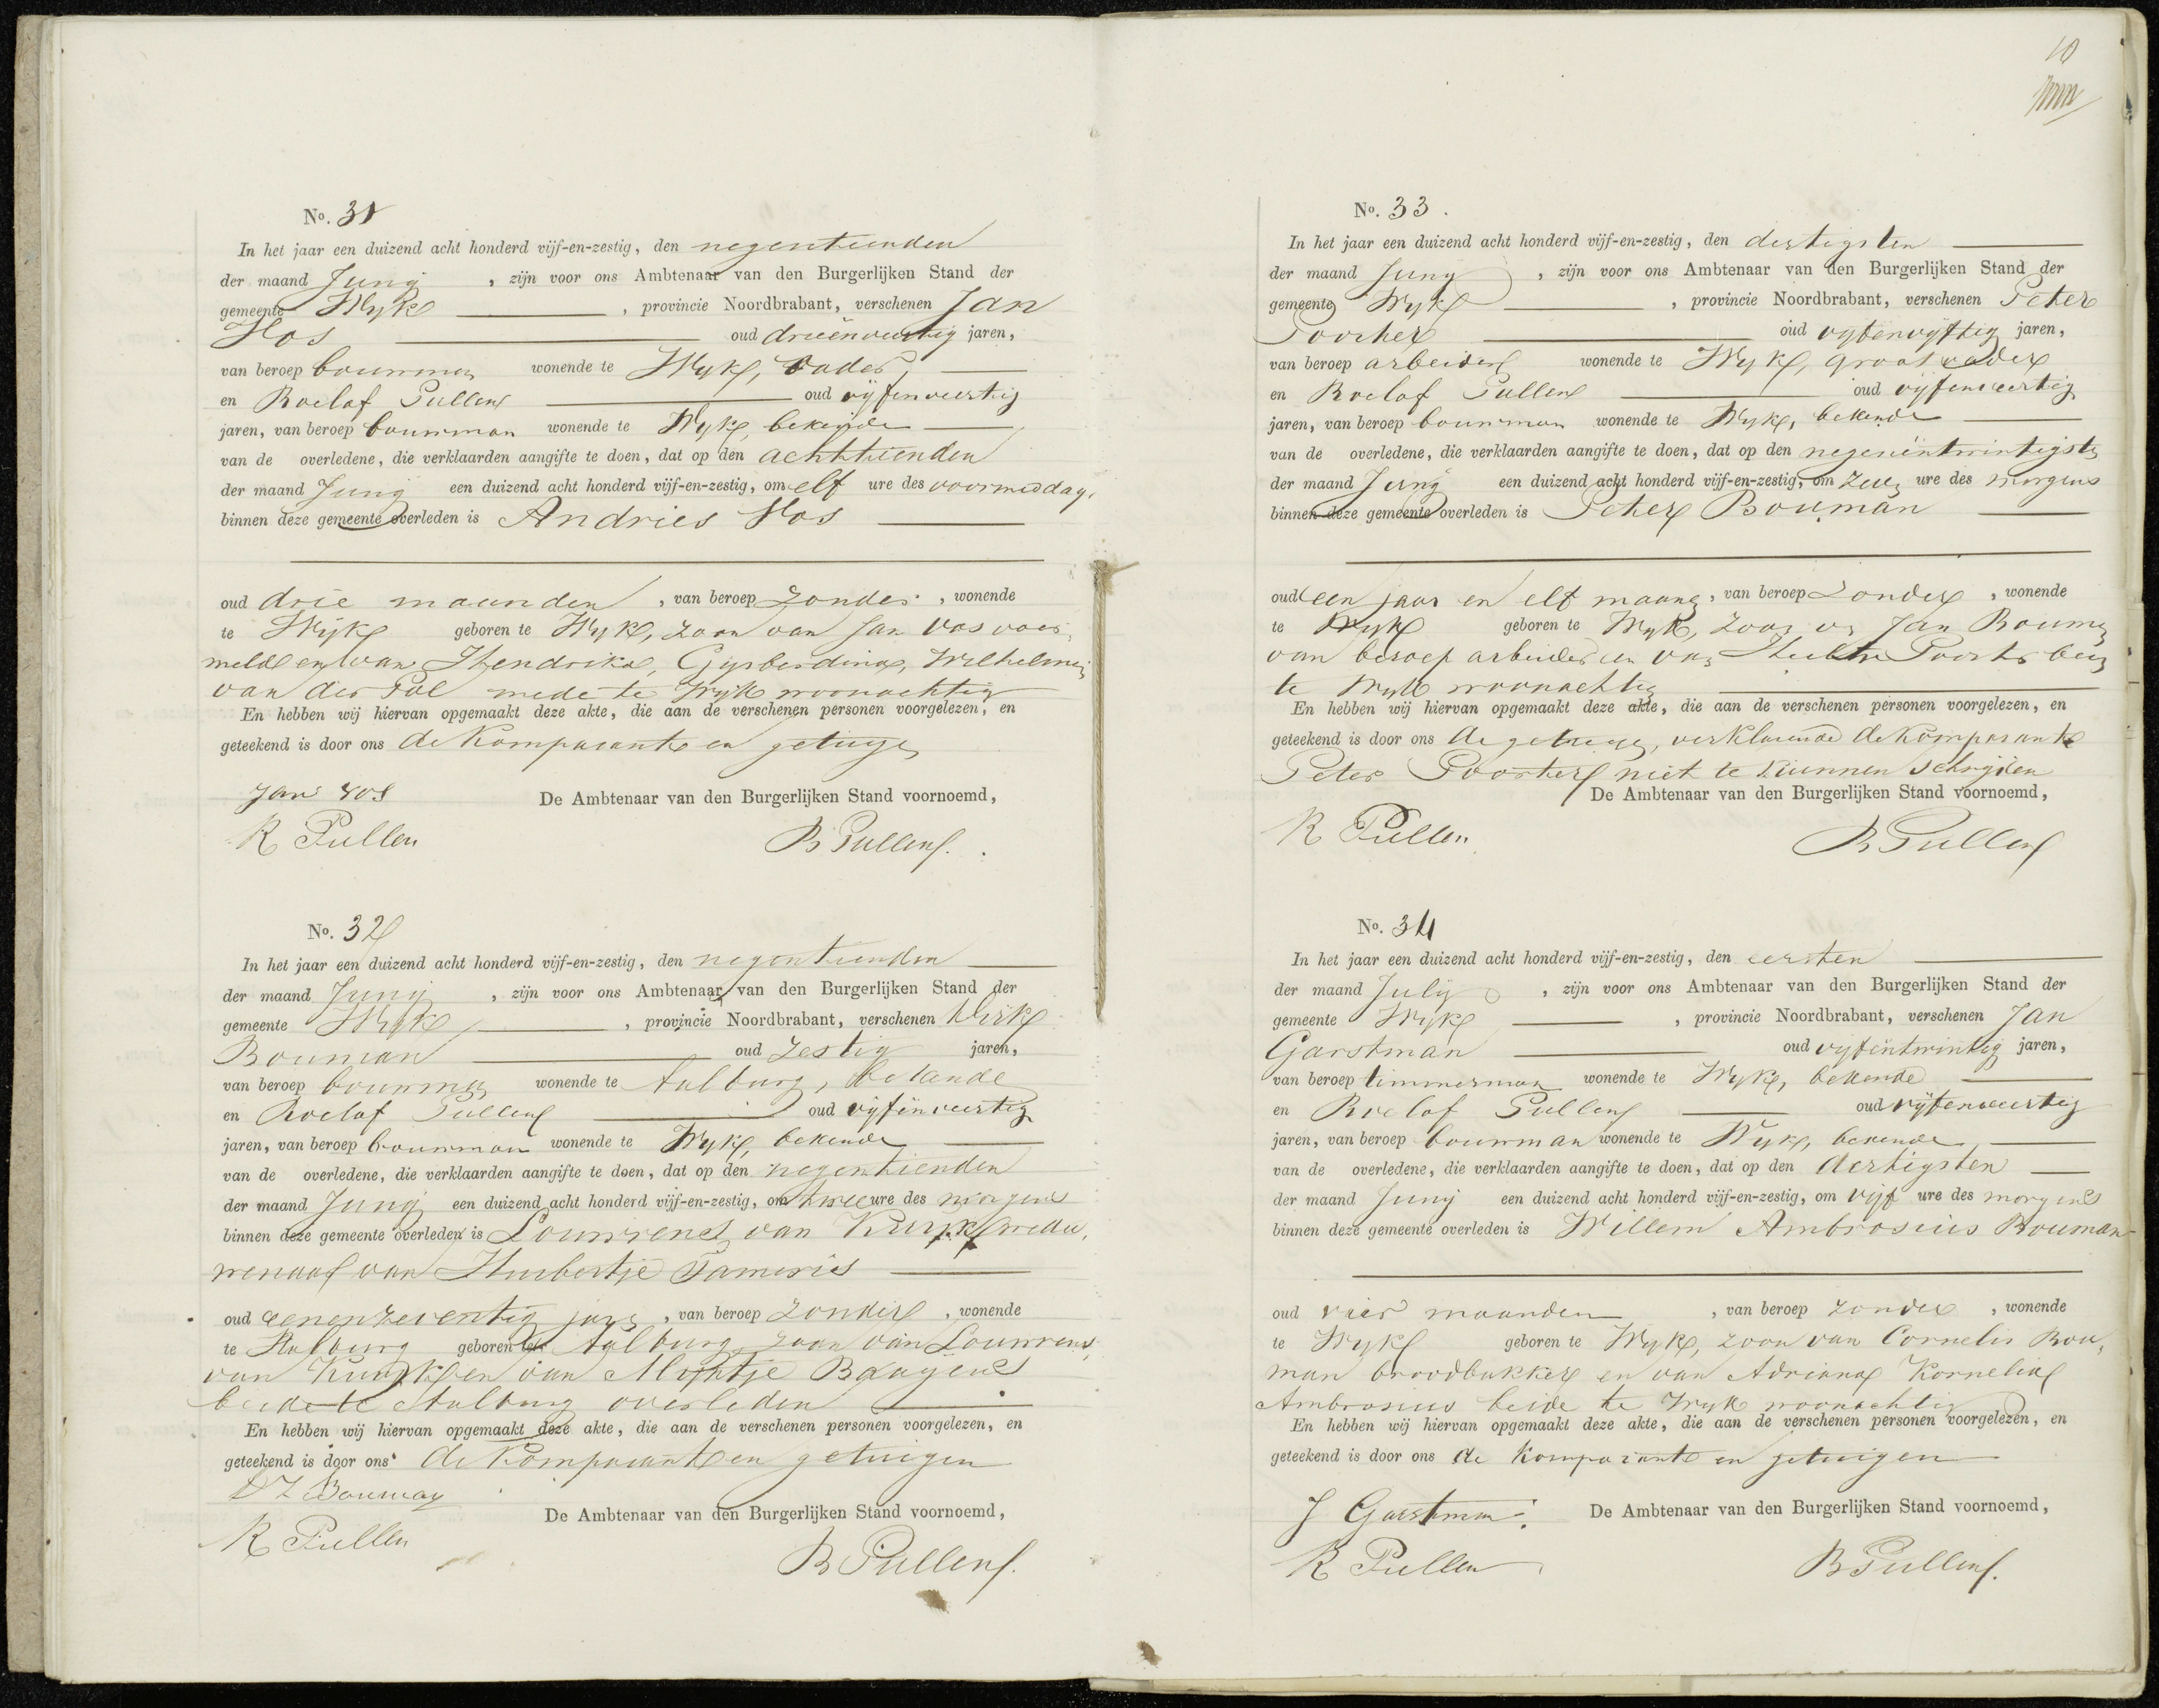 No. 31
In het jaar een duizend acht honderd vijf-en-zestig, den negentienden
der maand Junij , zijn voor ons Ambtenaar van den Burgerlijken Stand der
gemeente Wijk , provincie Noordbrabant, verschenen Jan
Vos oud drieenveertig jaren,
van beroep bouwman wonende te Wijk, vader,
en Roelof Pullens oud vijfenveertig
jaren, van beroep bouwman wonende te Wijk, bekende
van de overledene, die verklaarden aangifte te doen, dat op den achttienden
der maand Junij een duizend acht honderd vijf-en-zestig, om elf ure des voormiddags
binnen deze gemeente overleden is Andries Vos
oud drie maanden , van beroep zonder , wonende
te Wijk geboren te Wijk, zoon van Jan Vos voor-
meld en van Hendrika, Gijsberdina, Wilhelmina
van der Pol mede te Wijk woonachtig
En hebben wij hiervan opgemaakt deze akte, die aan de verschenen personen voorgelezen, en
geteekend is door ons de komparant en getuige
Jan Vos De Ambtenaar van den Burgerlijken Stand voornoemd,
R Pullen B Pullens.
No. 32
In het jaar een duizend acht honderd vijf-en-zestig, den negentienden
der maand Junij , zijn voor ons Ambtenaar van den Burgerlijken Stand der
gemeente Wijk , provincie Noordbrabant, verschenen Dirk
Bouman oud zestig jaren,
van beroep bouwman wonende te Aalburg, bekende
en Roelof Pullens oud vijfenveertig
jaren, van beroep bouwman wonende te Wijk, bekende
van de overledene, die verklaarden aangifte te doen, dat op den negentienden
der maand Junij een duizend acht honderd vijf-en-zestig, om twee ure des morgens
binnen deze gemeente overleden is Louwrens van Kuijk wedu-
wenaar van Huibertje Tameris
oud eenenzeventig jaren , van beroep zonder , wonende
te Aalburg geboren te Aalburg, zoon van Louwrens
van Kuijk en van Baayens
beide te Aalburg overleden
En hebben wij hiervan opgemaakt deze akte, die aan de verschenen personen voorgelezen, en
geteekend is door ons de komparant en getuigen
D Z Bouman
De Ambtenaar van den Burgerlijken Stand voornoemd,
R Pullen
B Pullens.
10
No. 33.
In het jaar een duizend acht honderd vijf-en-zestig, den dertigsten
der maand Junij , zijn voor ons Ambtenaar van den Burgerlijken Stand der
gemeente Wijk , provincie Noordbrabant, verschenen Peter
Poorter oud vijfenvijftig jaren,
van beroep arbeider wonende te Wijk, grootvader
en Roelof Pullens oud vijfenveertig
jaren, van beroep bouwman wonende te Wijk, bekende
van de overledene, die verklaarden aangifte te doen, dat op den negenentwintigsten
der maand Junij een duizend acht honderd vijf-en-zestig, om zeven ure des morgens
binnen deze gemeente overleden is Peter Bouman
oud een jaar en elf maanden, van beroep zonder , wonende
te Wijk geboren te Wijk, zoon van Jan Bouman
van beroep arbeider en van Poorter beiden
te Wijk woonachtig
En hebben wij hiervan opgemaakt deze akte, die aan de verschenen personen voorgelezen, en
geteekend is door ons de getuige, verklarende de komparant
Peter Poorter niet te kunnen schrijven
De Ambtenaar van den Burgerlijken Stand voornoemd,
R Pullen B Pullens
No. 34
In het jaar een duizend acht honderd vijf-en-zestig, den eersten
der maand Julij , zijn voor ons Ambtenaar van den Burgerlijken Stand der
gemeente Wijk , provincie Noordbrabant, verschenen Jan
Garstman oud vijfentwintig jaren,
van beroep timmerman wonende te Wijk, bekende
en Roelof Pullens oud vijfenveertig
jaren, van beroep bouwman wonende te Wijk, bekende,
van de overledene, die verklaarden aangifte te doen, dat op den dertigsten
der maand Junij een duizend acht honderd vijf-en-zestig, om vijf ure des morgens
binnen deze gemeente overleden is Willem Ambrosius Bouman
oud vier maanden , van beroep zonder , wonende
te Wijk geboren te Wijk, zoon van Cornelis Bou-
man broodbakker en van Adriana Kornelia
Ambrosius beide te Wijk woonachtig
En hebben wij hiervan opgemaakt deze akte, die aan de verschenen personen voorgelezen, en
geteekend is door ons de komparant en getuigen
J Garstman De Ambtenaar van den Burgerlijken Stand voornoemd,
R Pullen B Pullens.